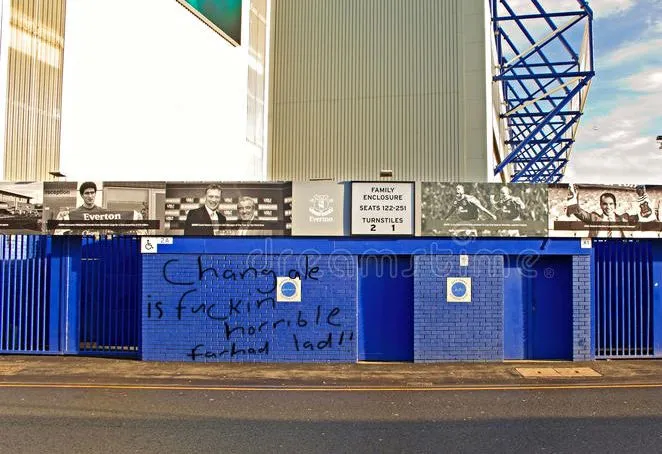 reception
Everton
Everton
FAMILY
ENCLOSURE
SEATS 122-251
TURNSTILES
2 1
2A
Chang ale
is fuckin
horrible
farhad lad!!
dreamstime